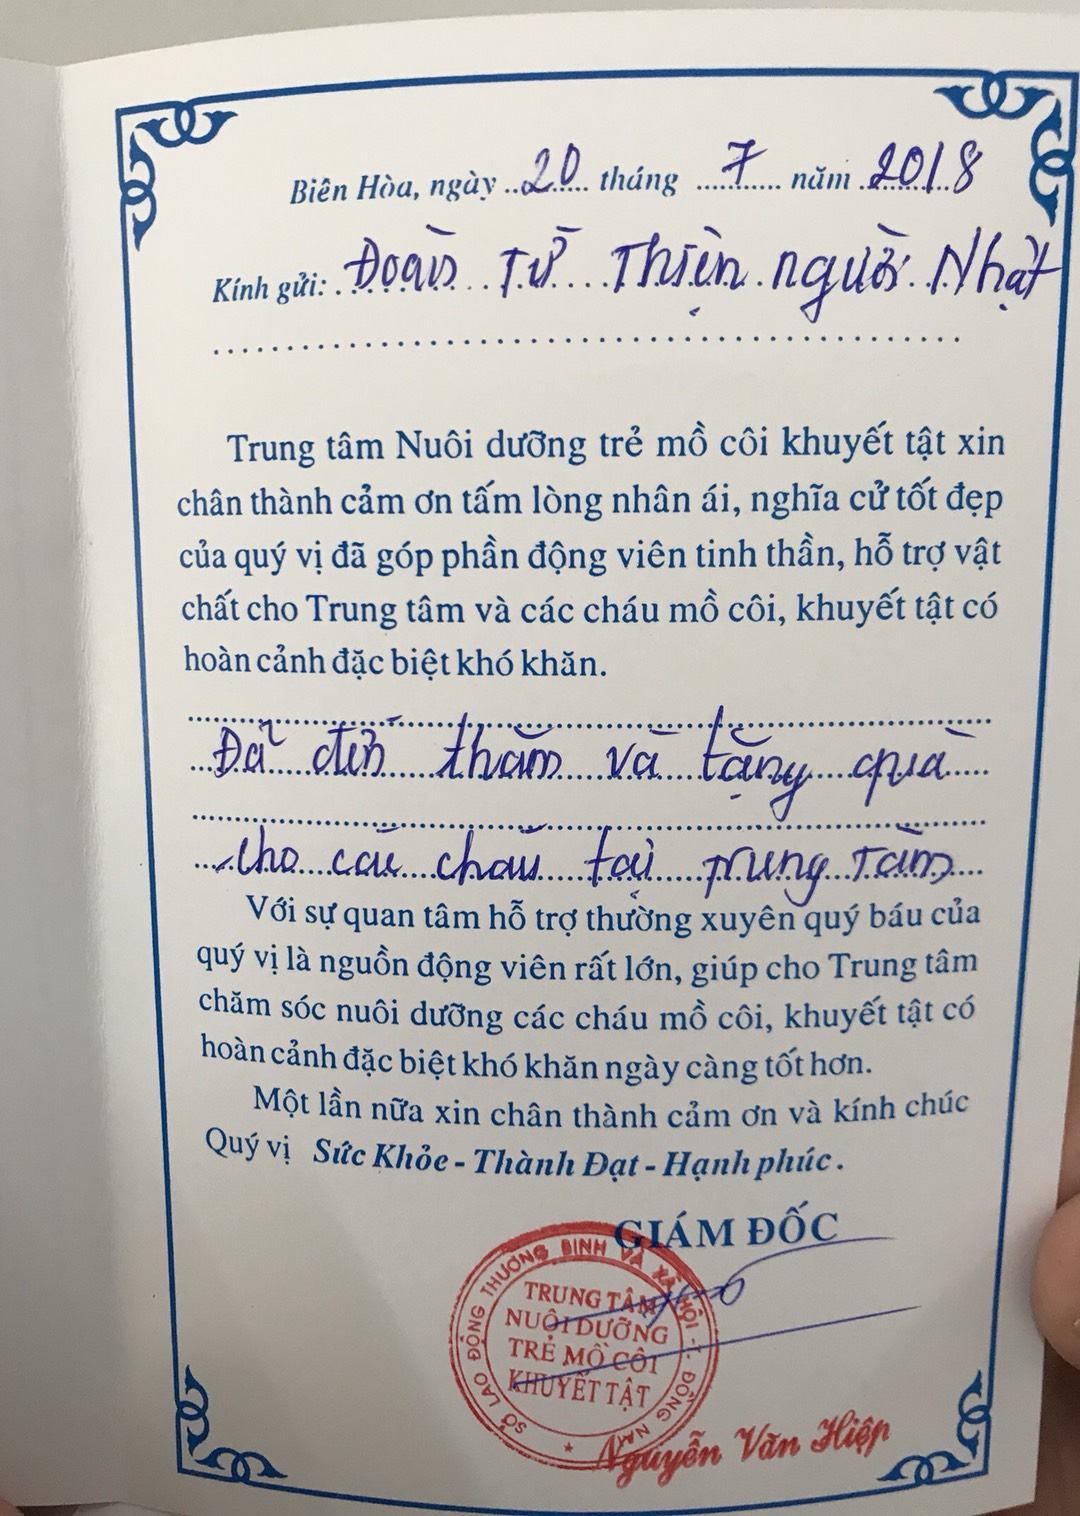 Biên Hòa, ngày ..20.... tháng .....7..... năm .2018
Kính gửi: Đoàn Từ Thiện người Nhật
Trung tâm Nuôi dưỡng trẻ mồ côi khuyết tật xin
chân thành cảm ơn tấm lòng nhân ái, nghĩa cử tốt đẹp
của quý vị đã góp phần động viên tinh thần, hỗ trợ vật
chất cho Trung tâm và các cháu mồ côi, khuyết tật có
hoàn cảnh đặc biệt khó khăn.
Đã đến thăm và tặng quà
cho các cháu tại Trung Tâm
Với sự quan tâm hỗ trợ thường xuyên quý báu của
quý vị là nguồn động viên rất lớn, giúp cho Trung tâm
chăm sóc nuôi dưỡng các cháu mồ côi, khuyết tật có
hoàn cảnh đặc biệt khó khăn ngày càng tốt hơn.
Một lần nữa xin chân thành cảm ơn và kính chúc
Quý vị Sức Khỏe - Thành Đạt - Hạnh phúc.
GIÁM ĐỐC
SỞ LAO ĐỘNG THƯƠNG BINH VÀ XÃ HỘI - T. ĐỒNG NAI
TRUNG TÂM
NUÔI DƯỠNG
TRẺ MỒ CÔI
KHUYẾT TẬT
Nguyễn Văn Hiệp